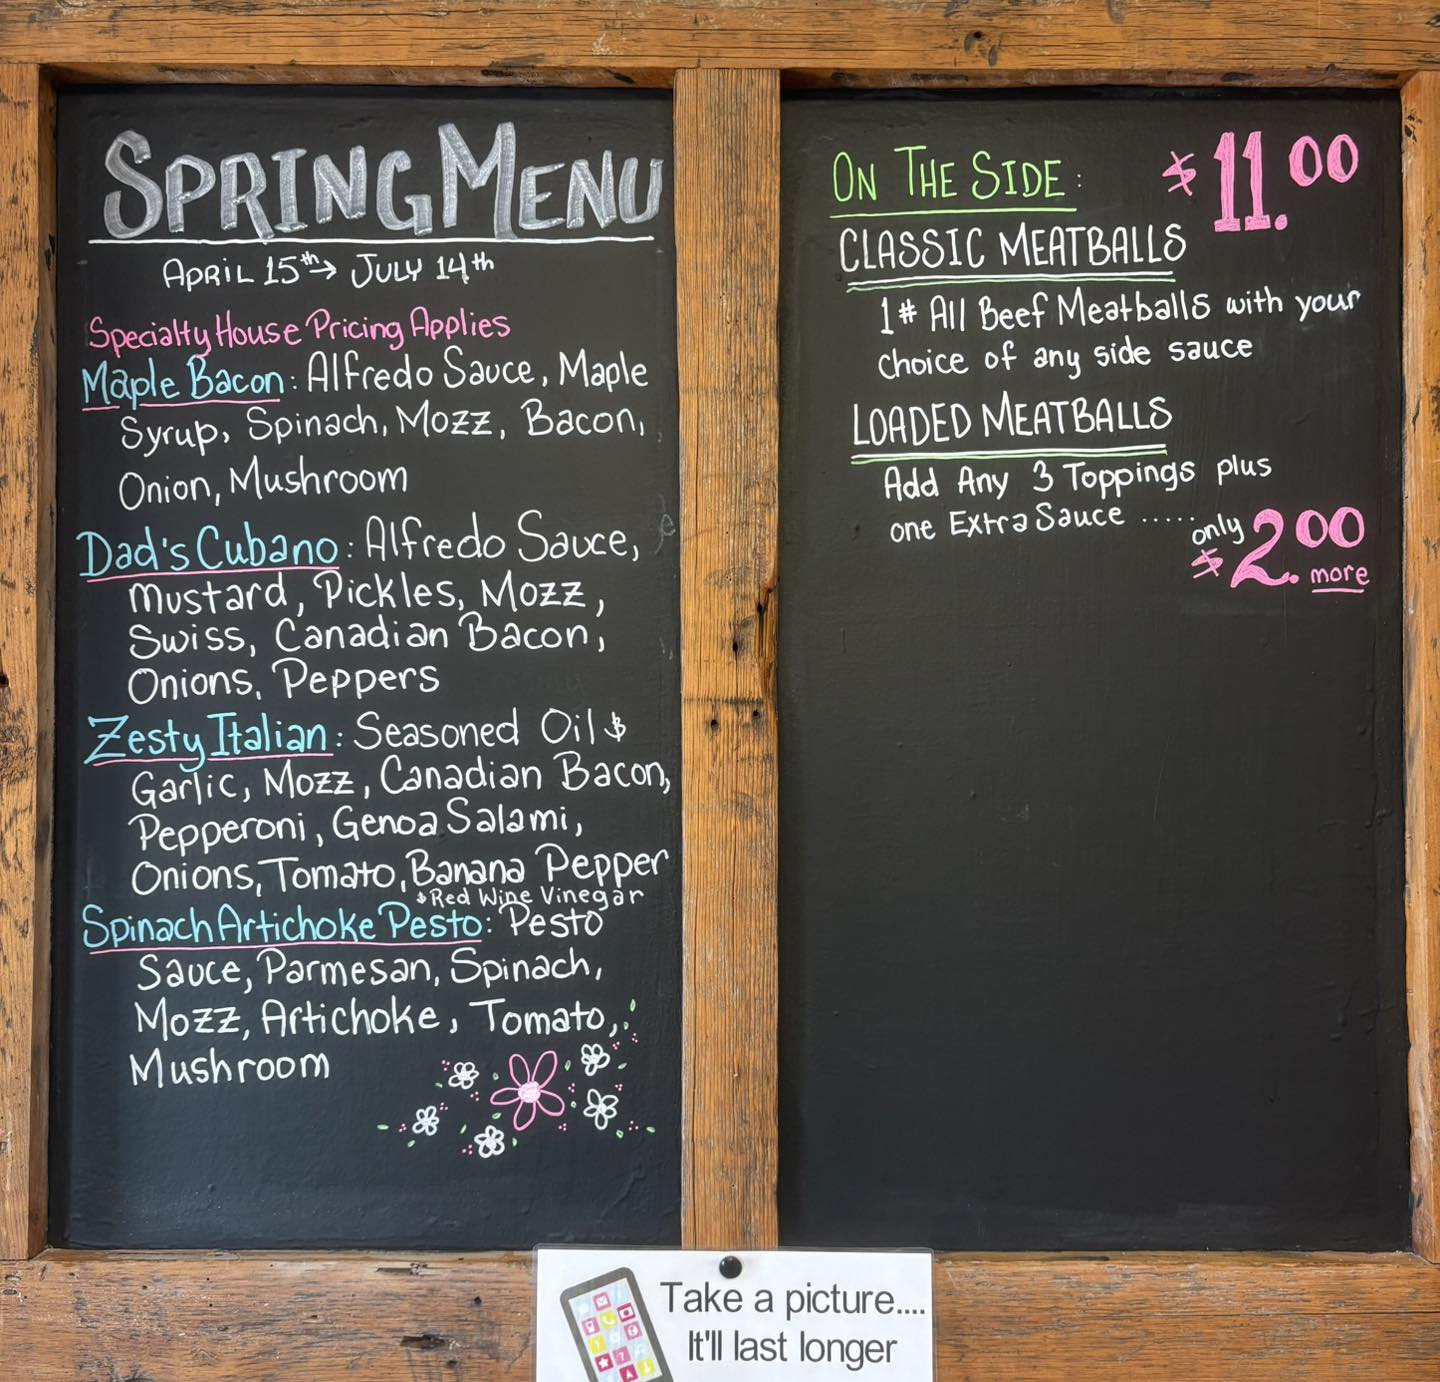 SPRING MENU
APRIL 15th → JULY 14th
Specialty House Pricing Applies
Maple Bacon: Alfredo Sauce, Maple
Syrup, Spinach, Mozz, Bacon,
Onion, Mushroom
Dad's Cubano: Alfredo Sauce,
Mustard, Pickles, Mozz,
Swiss, Canadian Bacon,
Onions, Peppers
Zesty Italian: Seasoned Oil &
Garlic, Mozz, Canadian Bacon,
Pepperoni, Genoa Salami,
Onions, Tomato, Banana Pepper
& Red Wine Vinegar
Spinach Artichoke Pesto: Pesto
Sauce, Parmesan, Spinach,
Mozz, Artichoke, Tomato,
Mushroom
ON THE SIDE: $11.00
CLASSIC MEATBALLS
1# All Beef Meatballs with your
choice of any side sauce
LOADED MEATBALLS
Add Any 3 Toppings plus
one Extra Sauce ..... only $2.00 more
Take a picture....
It'll last longer